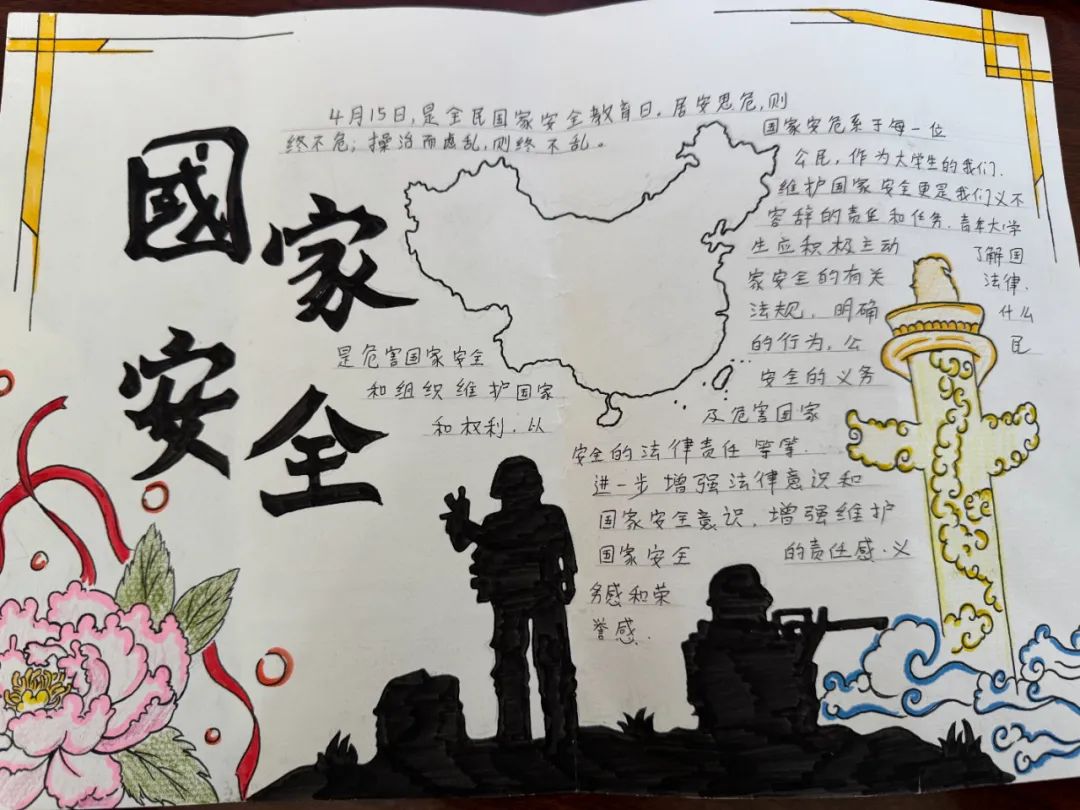 國家
安全
4月15日，是全民国家安全教育日。居安思危，则
终不危；操治而虑乱，则终不乱。
国家安危系于每一位
公民，作为大学生的我们．
维护国家安全更是我们义不
容辞的责任和任务．青年大学
生应积极主动 了解国
家安全的有关 法律．
法规，明确 什么
是危害国家安全 的行为，公 民
和组织维护国家 安全的义务
和权利，以 及危害国家
安全的法律责任等等．
进一步增强法律意识和
国家安全意识，增强维护
国家安全 的责任感．义
务感和荣
誉感．